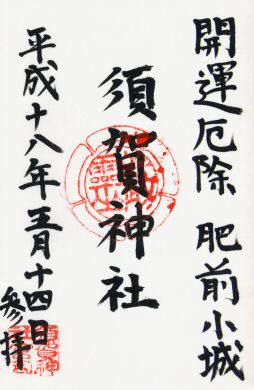 開運厄除 肥前小城
須賀神社
平成十八年五月十四日
参拝